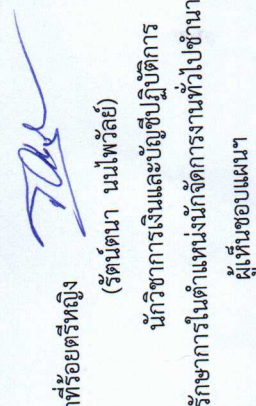 าที่ร้อยตรีหญิง
(รัตน์ตนา นนไพวัลย์)
นักวิชาการเงินและบัญชีปฏิบัติการ
รักษาการในตำแหน่งนักจัดการงานทั่วไปชำนา
ผู้เห็นชอบแผนฯ